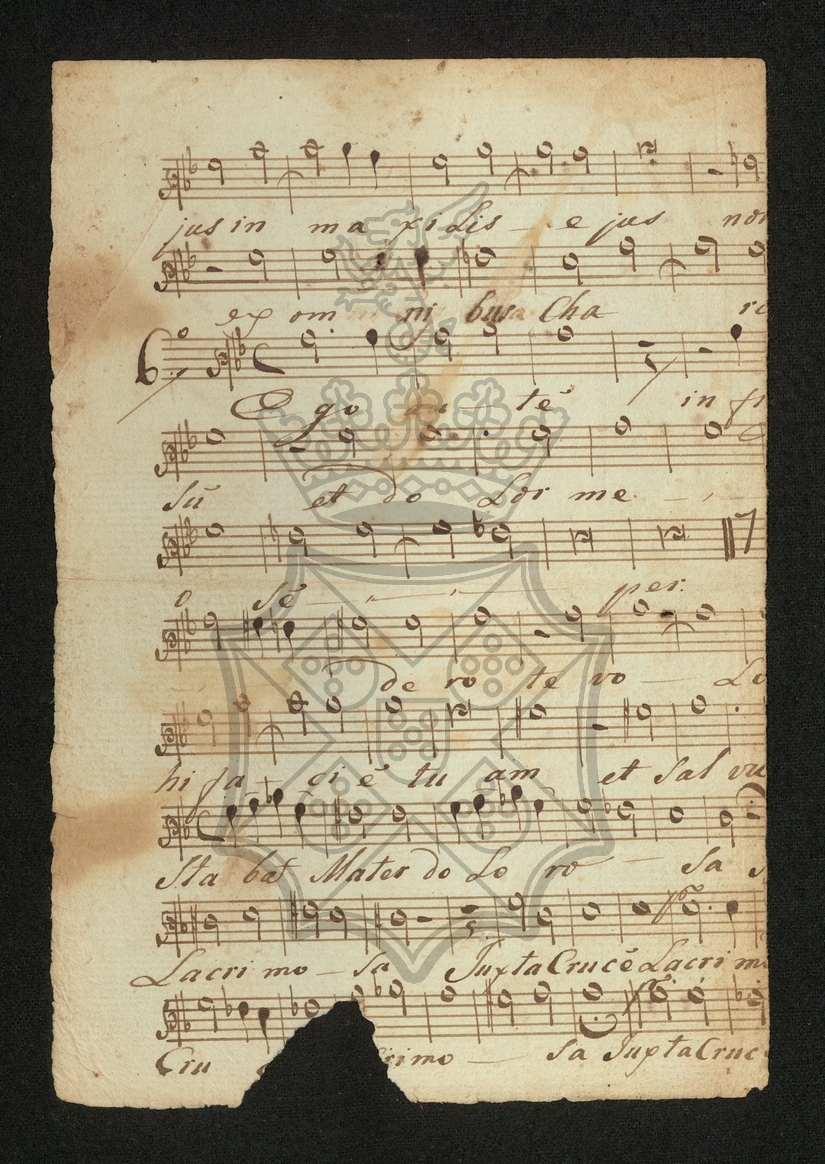 jus in ma xi Lis – e jus
ex om ni bus Cha
6
E go tē in
sū et do Lor me – –
7
o sē – – – per.
de ro te vo – Lo
hi fa ci ē tu am et Sal vu
Sta bat Mater do Lo ro – – Sa
Lacri mo – sa Juxta Crucē Lacri m
Cru rimo – sa Juxta Cruc